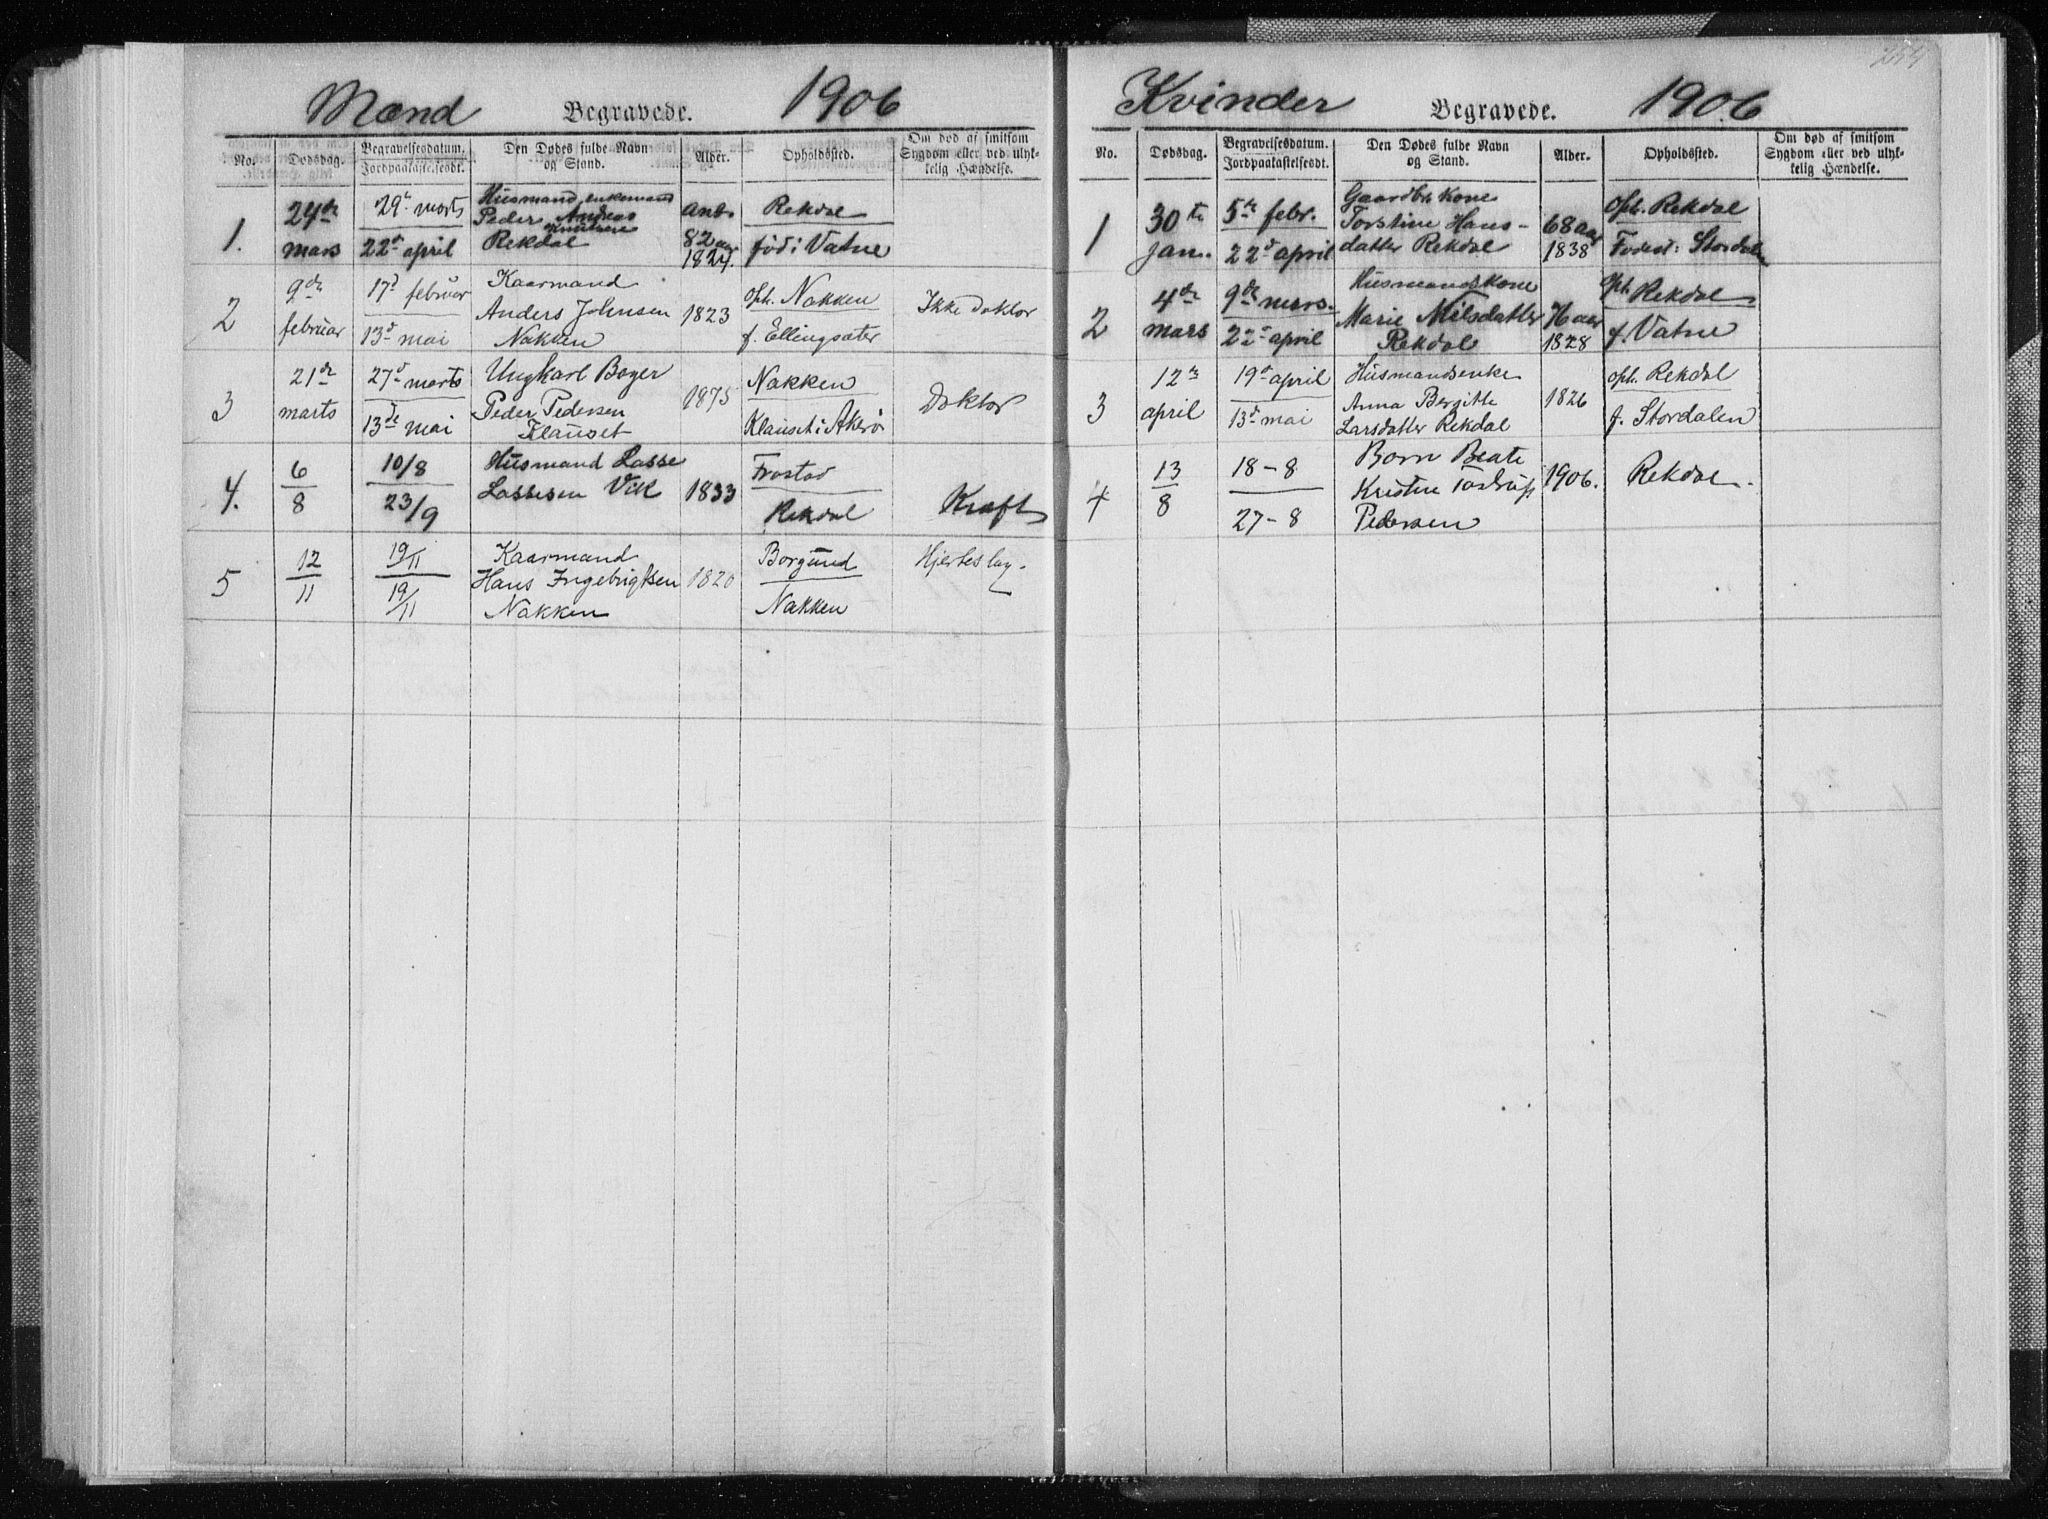 Mænd Begravede. 1906
No. Dødsdag. Begravelsesdatum. Jordpaakastelsesdt. Den Dødes fulde Navn og Stand. Alder. Opholdssted. Om død af smitsom Sygdom eller ved ulykkelig Hændelse.
1. 24de mars
29de marts
22de april
Husmand, enkemand
Peder Andreas
Knutsen
Rekdal
82 aar
1824.
Rekdal
født i Vatne
2 9de februar
17d februar
13d mai
Kaarmand
Anders Johnsen
Nakken
1823
Oph. Nakken
f. Ellingsæter
Ikke doktor
3 21de marts
27d marts
13de mai
Ungkarl Bager
Peder Pedersen
Klauset
1875
Nakken
Klauset i Akerø
Doktor
4. 6/8
10/8
23/9
Husmand Lasse
Lassesen Vik
1833
Frostad
Rekdal
Kræft
5 12/11
19/11
19/11
Kaarmand
Hans Ingebrigtsen
Nakken
1820
Borgund
Nakken
Hjerteslag.
Kvinder Begravede. 1906
No. Dødsdag. Begravelsesdatum. Jordpaakastelsesdt. Den Dødes fulde Navn og Stand. Alder. Opholdssted. Om død af smitsom Sygdom eller ved ulykkelig Hændelse.
1 30te jan.
5te febr.
22d april
Gaardbr. kone
Torstine Hans-
datter Rekdal
68 aar
1838
Oph. Rekdal
Fødest: Stordalen
2 4de mars
9de mars.
22d april
Husmandskone
Marie Nilsdatter
Rekdal
76 aar
1828
Oph. Rekdal
f. Vatne
3 12te april
19d april
13d mai
Husmandsenke
Anna Bergitte
Larsdatter Rekdal
1826
oph. Rekdal
f. Stordalen
4 13/8
18-8
27-8
Barn Beate
Kristine Tostrup
Pedersen
1906.
Rekdal.